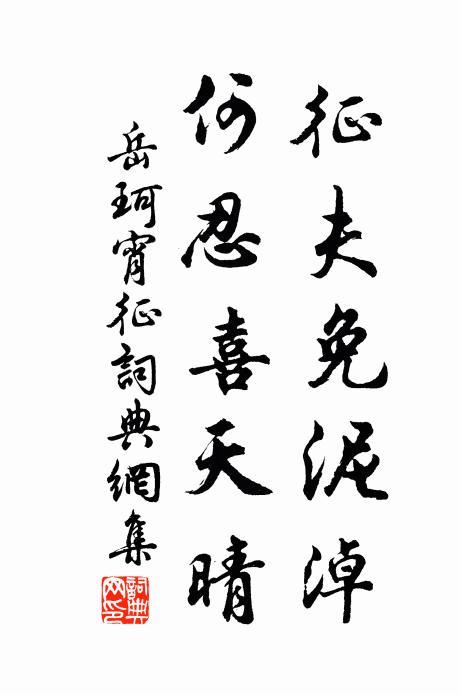 征夫免泥淖
何忍喜天晴
岳珂宵征詞典網集
詞典网印